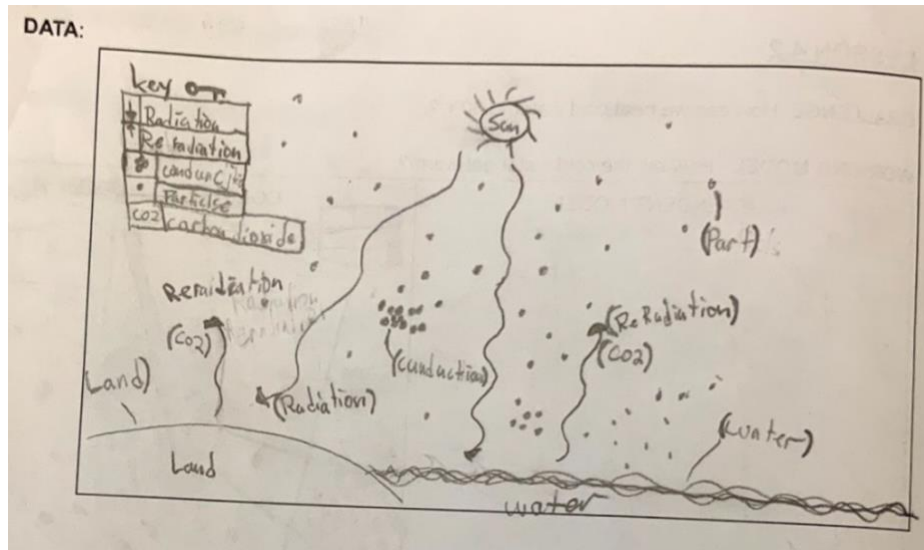 DATA:
key
Radiation
Reradiation
Particlse
CO2 carbondioxide
Sun
(Part)
Reraidiation
(CO2)
(Radiation)
(conduction)
(ReRadiation)
(CO2)
Land)
Land
(water)
water